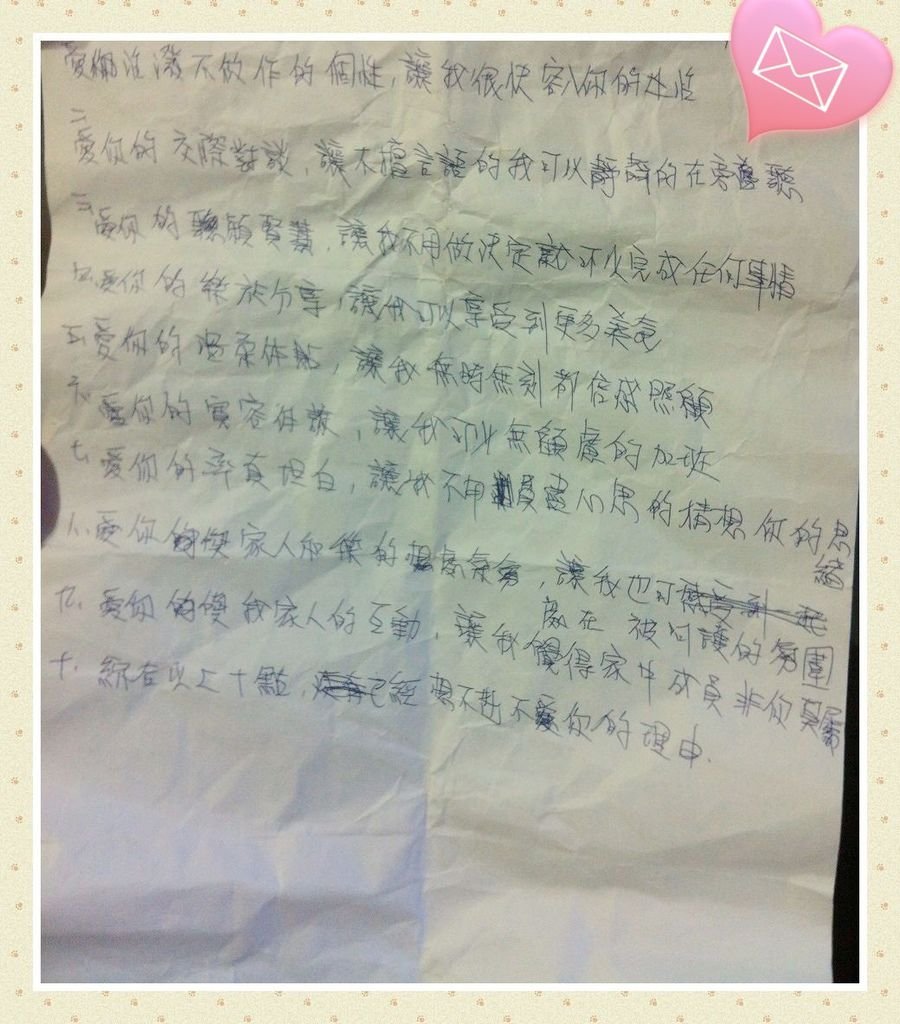 愛你活潑不做作的個性，讓我很快容入你的生活
二、愛你的交際對談，讓不擅言語的我可以靜靜的在旁聽
三、愛你的聰穎賢慧，讓我不用做決定就可以完成任何事情
四、愛你的樂於分享，讓我可以享受到更多美食
五、愛你的溫柔体貼，讓我無時無刻都倍感照顧
六、愛你的寬容体諒，讓我可以無顧慮的加班
七、愛你的率真坦白，讓我不用費盡心思的猜想你的思緒
八、愛你的與家人和樂的氣氛，讓我也可
處在 被呵護的氛圍
九、愛你的與我家人的互動，讓我覺得家中成員非你莫屬
十、綜在以上十點，已經想不到不愛你的理由.